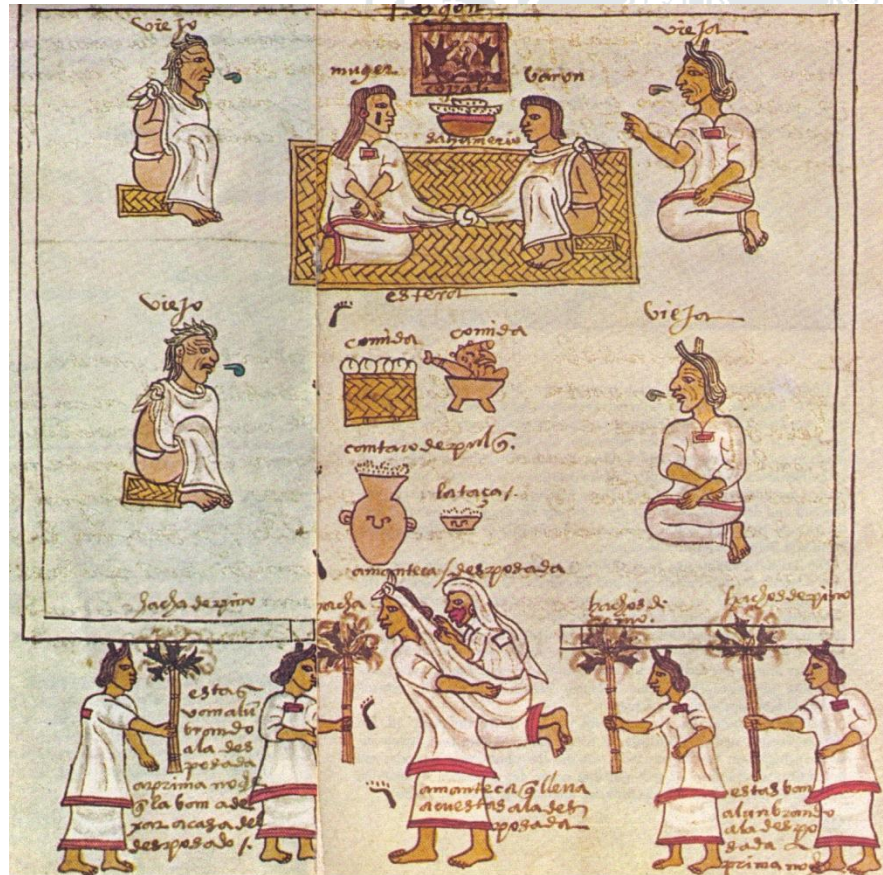 fogon
viejo
vieja
muger
varon
copali
sahumerio
estera
viejo
vieja
comida
comida
cantaro de pulq̃.
la taça /.
amanteca /. desposada
hacha de pino
hacha
hachos de
pino.
hachos de pino
estas
van alũ
brando
a la des
posada
a prima noche
q̃ la van a de
xar a casa del
desposado /.
amanteca q̃ lleva
a cuestas a la des
posada
estas van
alunbrando
a la despo
sada
prima noche